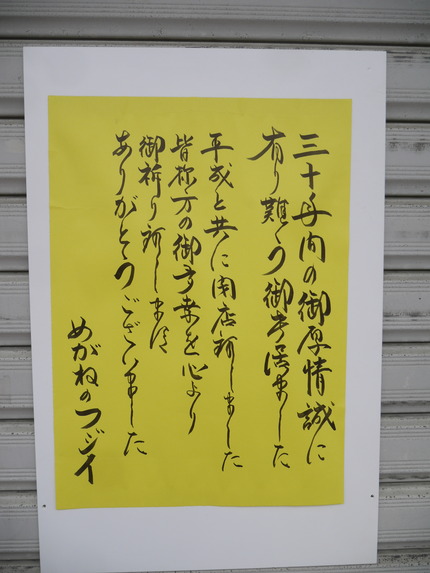 三十年间の御厚情誠に
有り難う御座居ました
平成と共に閉店致しました
皆様方の御多幸を心より
御祈り致します
ありがとうございました
めがねのフジイ